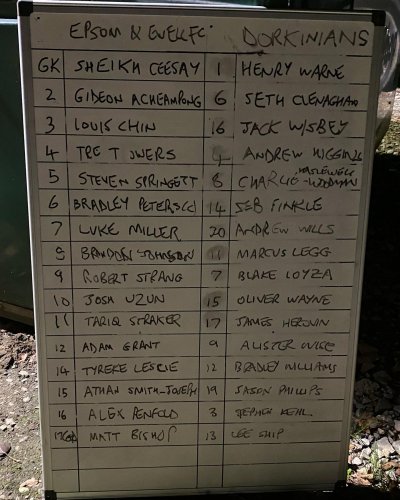 EPSOM & EWELL FC. DORKINIANS
GK SHEIKH CEESAY 1 HENRY WARNE
2 GIDEON ACHEAMPONG 6 SETH CLENAGHAN
3 LOUIS CHIN 16 JACK WISBEY
4 TRE TOWERS ANDREW HIGGINS
5 STEVEN SPRINGETT 8 CHARLIE HASLEWELL WOODMAN
6 BRADLEY PETERS (C) 14 SEB FINKLE
7 LUKE MILLER 20 ANDREW WILLS
8 BRANDON JOHNSON 11 MARCUS LEGG
9 ROBERT STRANG 7 BLAKE LOYZA
10 JOSH UZUN 15 OLIVER WAYNE
11 TARIQ STRAKER 17 JAMES
12 ADAM GRANT 9 ALISTER
14 TYREKE LESLIE 12 BRADLEY WILLIAMS
15 ATHAN SMITH-JOSEPH 19 JASON PHILLIPS
16 ALEX PENFOLD 3 STEPHEN
MATT BISHOP 13 LEE SHIP